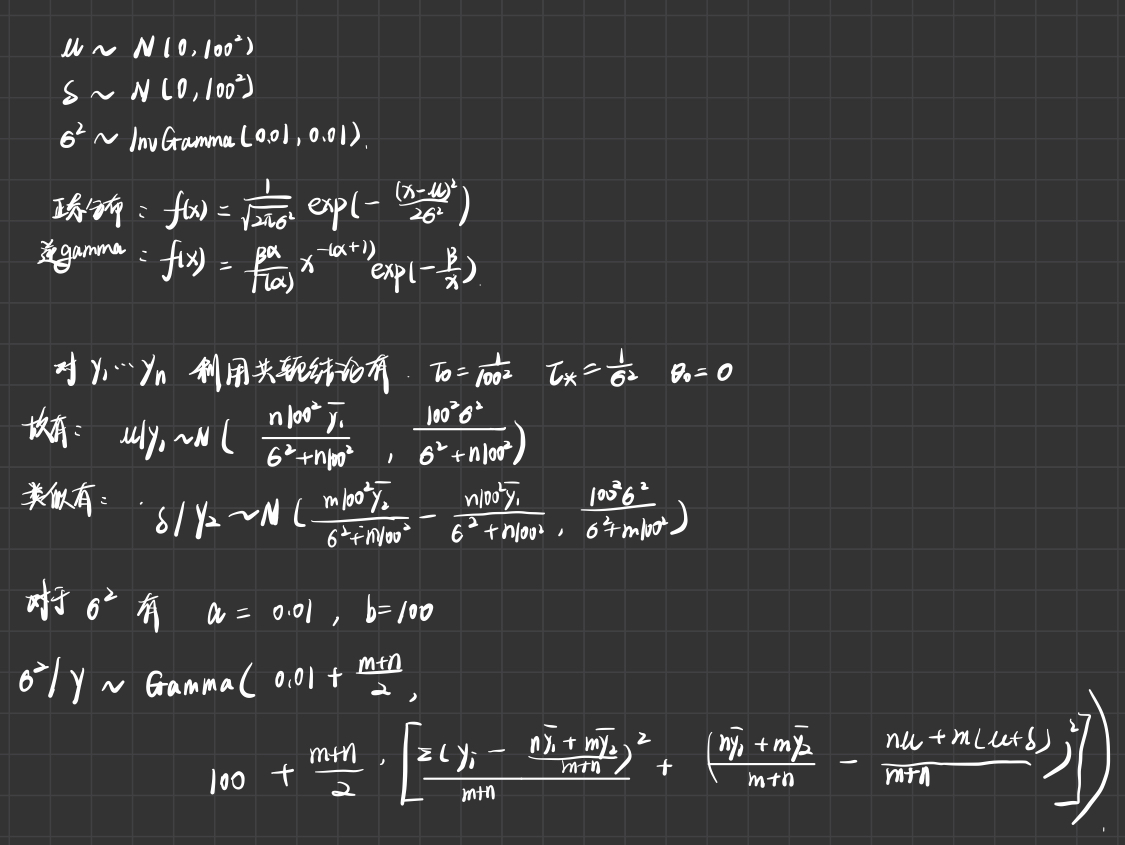 μ ~ N(0, 100²)
δ ~ N(0, 100²)
σ² ~ InvGamma(0.01, 0.01).
正态分布: f(x) = 1/√(2πσ²) exp(-(x-μ)²/2σ²)
逆gamma: f(x) = β^α/Γ(α) x^(-(α+1)) exp(-β/x).
对 y₁…yₙ 利用共轭结论有. τ₀ = 1/100² τ* = 1/σ² θ₀ = 0
故有: μ|y₁ ~ N( n100² ȳ₁/(σ²+n100²) , 100²σ²/(σ²+n100²) )
类似有: δ/y₂ ~ N( m100² ȳ₂/(σ²+m100²) - n100² ȳ₁/(σ²+n100²) , 100²σ²/(σ²+m100²) )
对于 σ² 有 a = 0.01 , b = 100
σ²/y ~ Gamma( 0.01 + (m+n)/2 ,
100 + (m+n)/2 · [ Σ(yᵢ - (nȳ₁+mȳ₂)/(m+n))²/(m+n) + ( (nȳ₁+mȳ₂)/(m+n) - (nμ+m(μ+δ))/(m+n) )² ] )